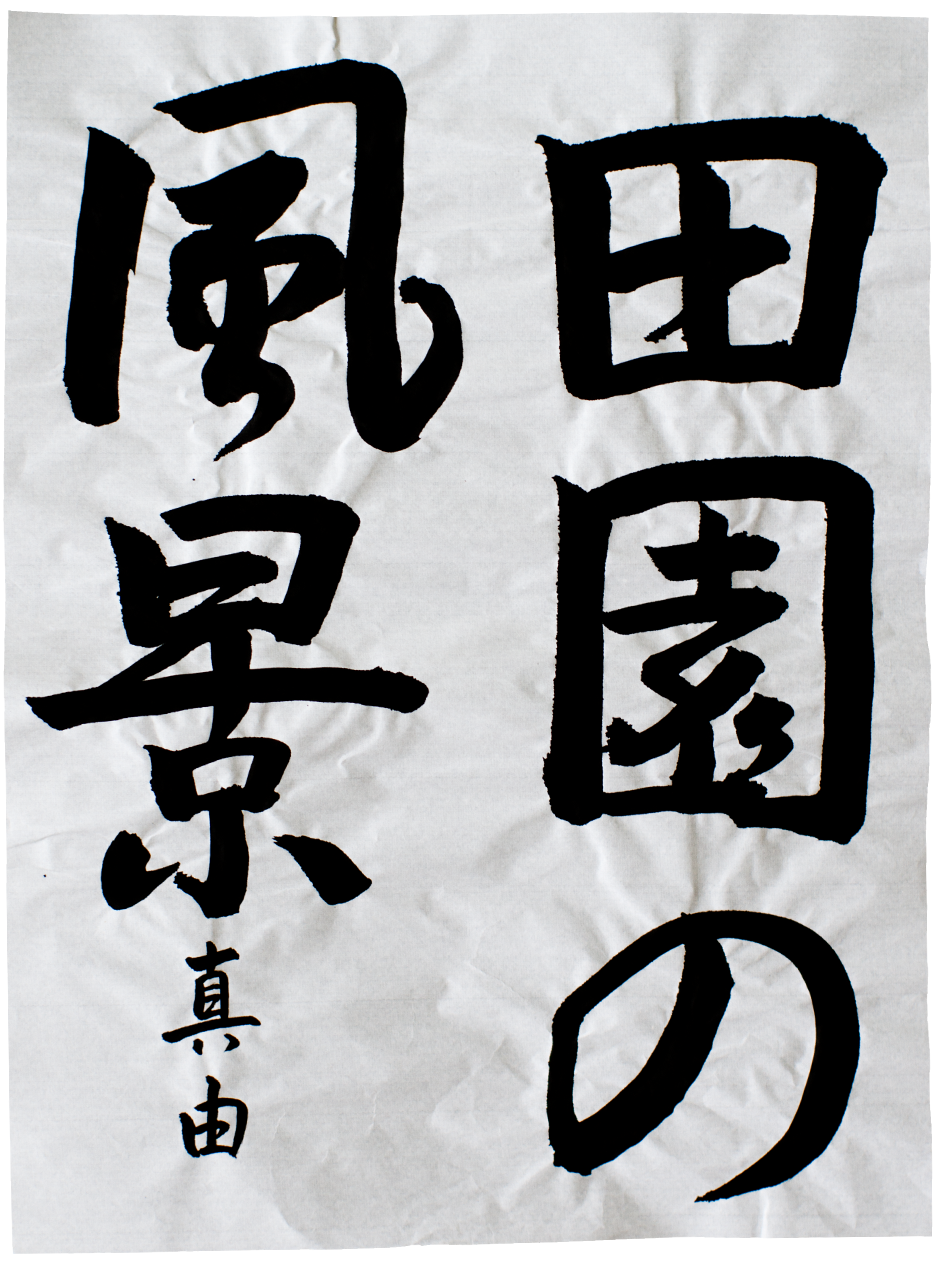 田園の
風景
真由